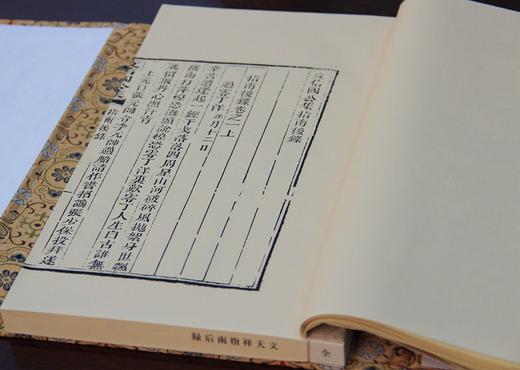 文信國公集指南後錄
指南後錄卷之一上
過零丁洋 正月十二日
辛苦遭逢起一經干戈落落四周星山河破碎風拋絮身世飄
搖雨打萍惶恐灘頭說惶恐零丁洋裏歎零丁人生自古誰無
死留取丹心照汗青
上元日張元帥令李元帥過船請作書招諭張少保投拜遂
指南後錄
文天祥指南后録
全